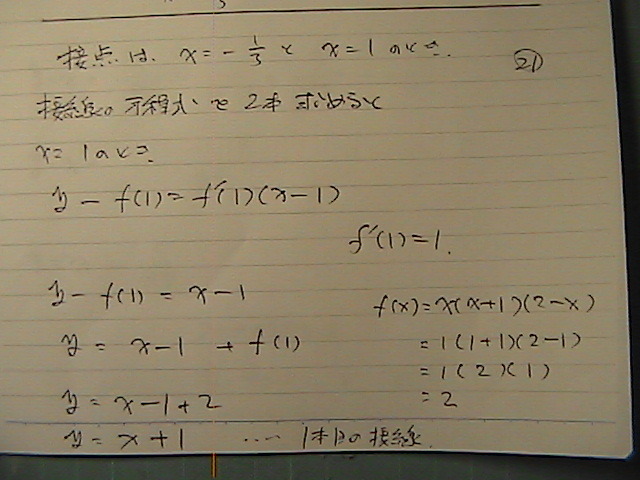 接点は、x = -1/3 と x = 1 のとき。
21
接線の方程式を2本求めると
x = 1 のとき。
y - f(1) = f'(1)(x-1)
f'(1) = 1.
y - f(1) = x - 1
f(x) = x(x+1)(2-x)
y = x-1 + f(1)
= 1(1+1)(2-1)
= 1(2)(1)
y = x-1+2
= 2
y = x+1 ‥‥ 1本目の接線.